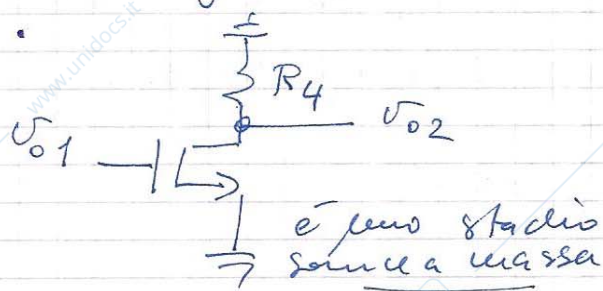 www.unidocs.it
R4
vo2
vo1
è uno stadio
source a massa